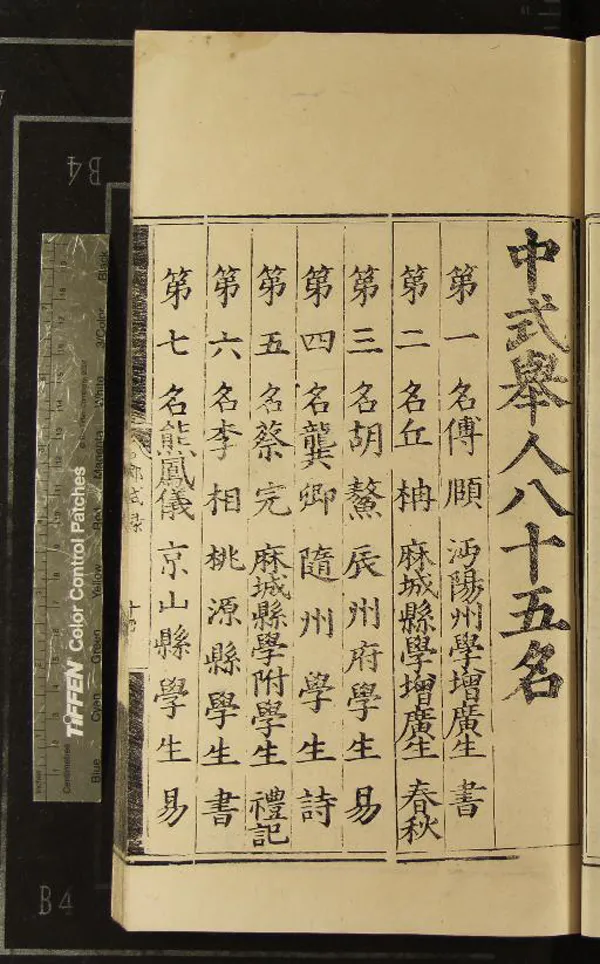 中式舉人八十五名
第一名傅頤 沔陽州學增廣生 書
第二名丘柟 麻城縣學增廣生 春秋
第三名胡鰲 辰州府學生 易
第四名龔卿 隨州學生 詩
第五名蔡完 麻城縣學附學生 禮記
第六名李相 桃源縣學生 書
第七名熊鳳儀 京山縣學生 易
B4
B4
TIFFEN Color Control Patches
Blue Cyan Green Yellow Red Magenta White 3/Color Black
Inches
Centimetres